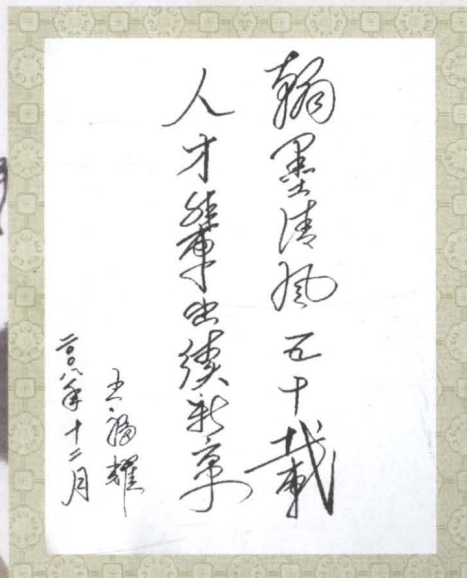 翰墨清风五十载
人才辈出续新章
王福耀
二〇〇八年十二月